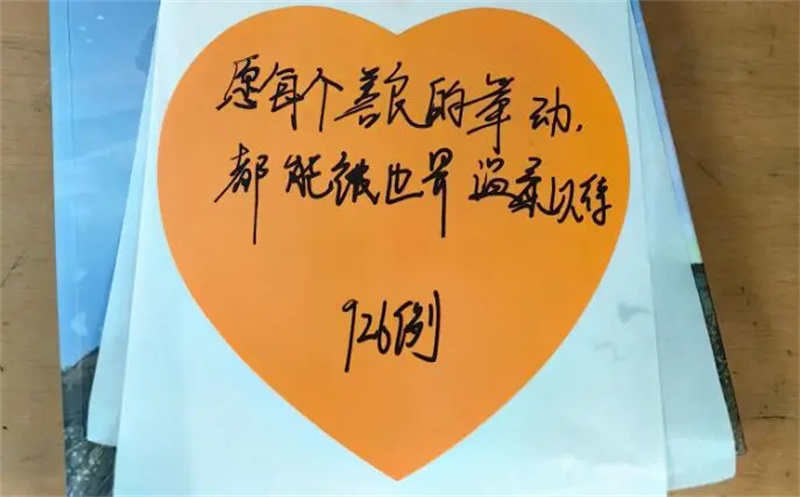 愿每个善良的举动，
都能被世界温柔以待
926例